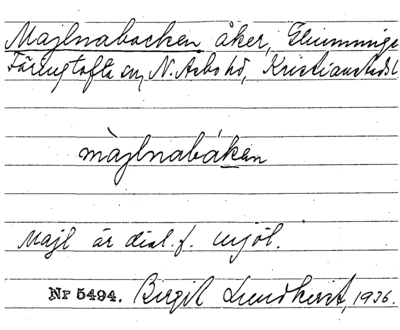 Majlnabacken åker, Glimminge
Färingtofta sn, N. Åsbo hd, Kristianstads l
màjlnabáken
Majl är dial. f. mjöl.
NP 5494. Birgit Lundkvist, 1936.